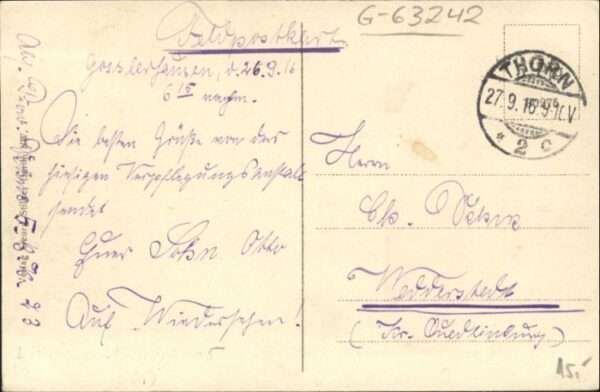 G-63242
Feldpostkarte
Gosslershausen, d. 26.9.16
6 15 nachm.
Die besten Grüße von der
hiesigen Verpflegungsanstalt
sendet
Euer Sohn Otto
Auf Wiedersehen!
THORN
27.9.16.9-10.V.
* 2 c
Herrn
Wedderstedt
(Kr. Quedlinburg)
15.-